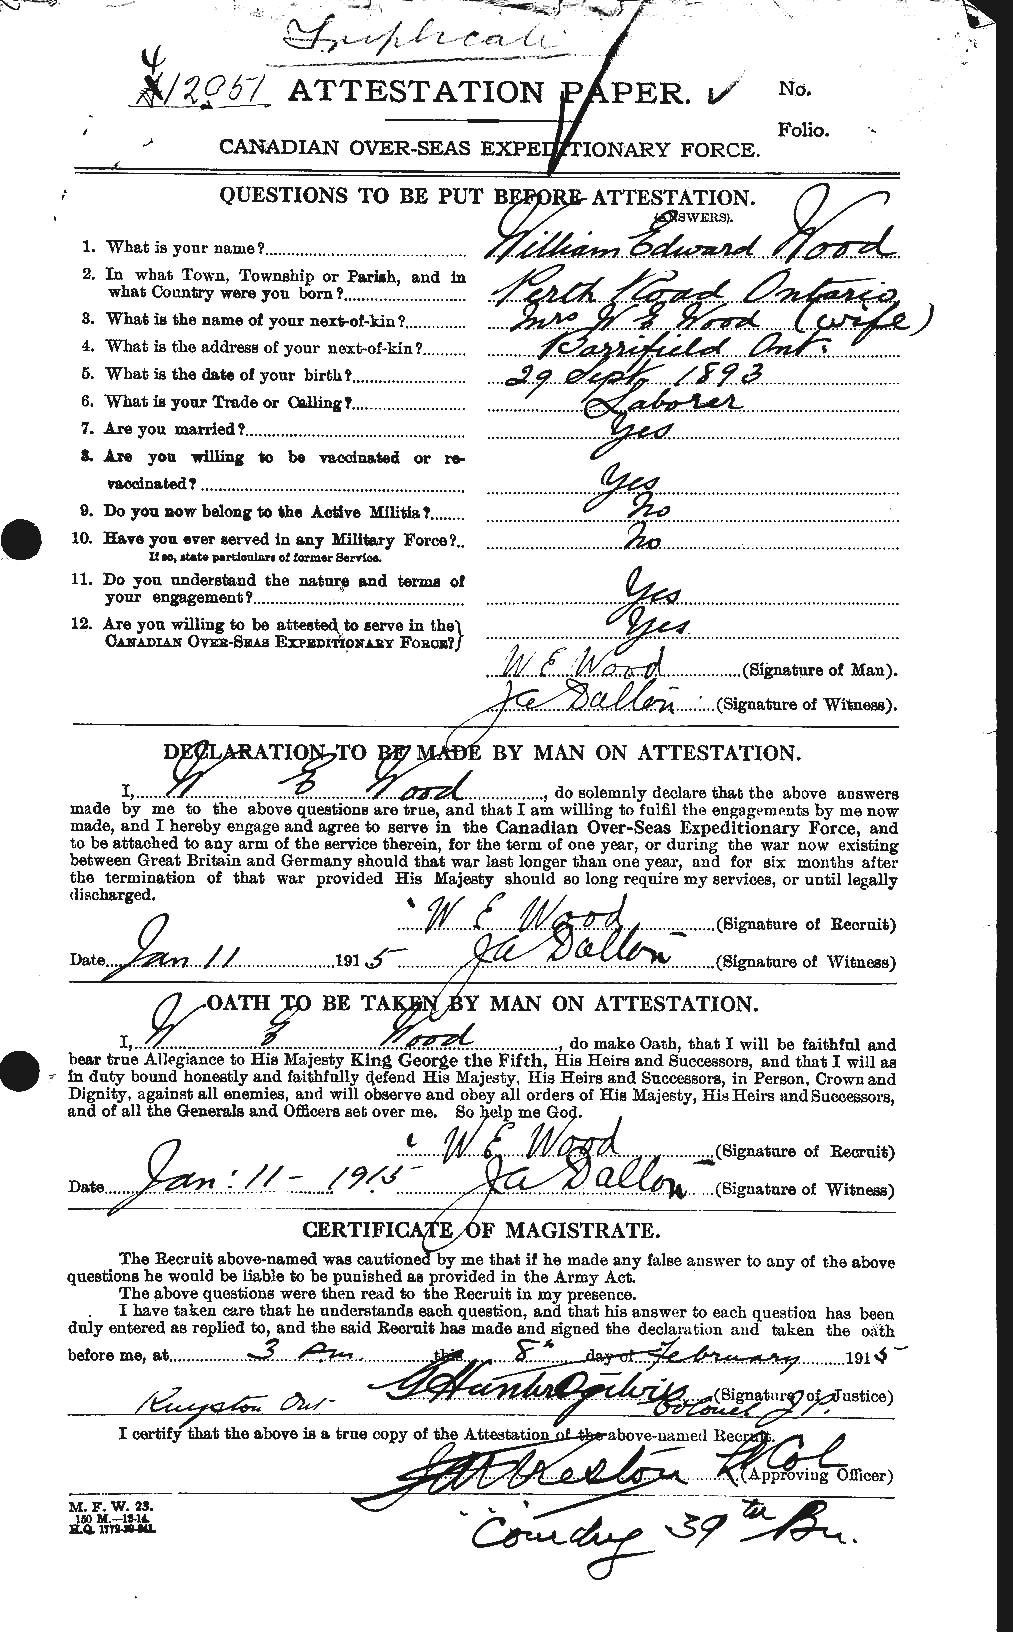 Triplicate
412051 ATTESTATION PAPER. No.
Folio.
CANADIAN OVER-SEAS EXPEDITIONARY FORCE.
QUESTIONS TO BE PUT BEFORE ATTESTATION.
(ANSWERS).
1. What is your name? William Edward Wood
2. In what Town, Township or Parish, and in
what Country were you born? Perth Road Ontario
3. What is the name of your next-of-kin? Mrs W E Wood (wife)
4. What is the address of your next-of-kin? Barriefield Ont.
5. What is the date of your birth? 29 Sept 1893
6. What is your Trade or Calling? Laborer
7. Are you married? Yes
8. Are you willing to be vaccinated or re-
vaccinated? Yes
9. Do you now belong to the Active Militia? No
10. Have you ever served in any Military Force? No
If so, state particulars of former Service.
11. Do you understand the nature and terms of
your engagement? Yes
12. Are you willing to be attested to serve in the
CANADIAN OVER-SEAS EXPEDITIONARY FORCE? Yes
W E Wood (Signature of Man).
J A Dalton (Signature of Witness).
DECLARATION TO BE MADE BY MAN ON ATTESTATION.
I, W E Wood, do solemnly declare that the above answers
made by me to the above questions are true, and that I am willing to fulfil the engagements by me now
made, and I hereby engage and agree to serve in the Canadian Over-Seas Expeditionary Force, and
to be attached to any arm of the service therein, for the term of one year, or during the war now existing
between Great Britain and Germany should that war last longer than one year, and for six months after
the termination of that war provided His Majesty should so long require my services, or until legally
discharged.
W E Wood (Signature of Recruit)
Date Jan 11 1915 J A Dalton (Signature of Witness)
OATH TO BE TAKEN BY MAN ON ATTESTATION.
I, W E Wood, do make Oath, that I will be faithful and
bear true Allegiance to His Majesty King George the Fifth, His Heirs and Successors, and that I will as
in duty bound honestly and faithfully defend His Majesty, His Heirs and Successors, in Person, Crown and
Dignity, against all enemies, and will observe and obey all orders of His Majesty, His Heirs and Successors,
and of all the Generals and Officers set over me. So help me God.
W E Wood (Signature of Recruit)
Date Jan: 11 - 1915 J A Dalton (Signature of Witness)
CERTIFICATE OF MAGISTRATE.
The Recruit above-named was cautioned by me that if he made any false answer to any of the above
questions he would be liable to be punished as provided in the Army Act.
The above questions were then read to the Recruit in my presence.
I have taken care that he understands each question, and that his answer to each question has been
duly entered as replied to, and the said Recruit has made and signed the declaration and taken the oath
before me, at 3 P.m. this 8th day of February 1915
G Hunter Ogilvie (Signature of Justice)
Kingston Ont Colonel J.P.
I certify that the above is a true copy of the Attestation of the above-named Recruit.
Preston Lt Col (Approving Officer)
M. F. W. 23.
150 M.—12-14.
H.Q. 1772-39-841.
Comdg 39th Bn.